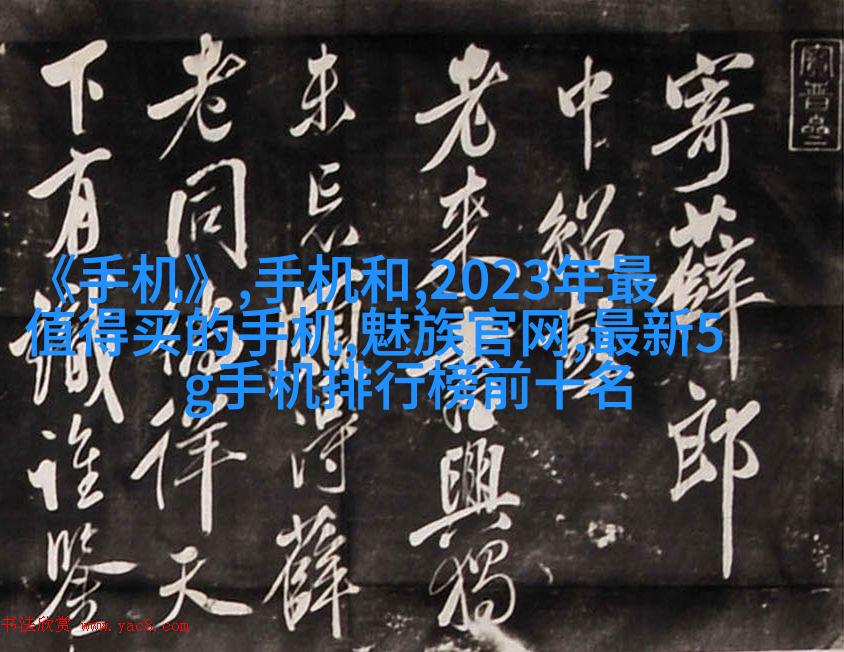 寄薛郎
中紹彭
老来書興獨
未忘頗得薛
老同徜徉天
下有識誰鑒
《手机》,手机和,2023年最
值得买的手机,魅族官网,最新5
g手机排行榜前十名
书法欣赏 www.yac8.com